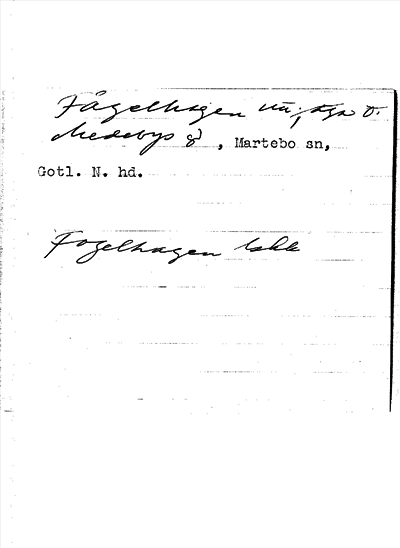 Fågelhagen äga t.
Medebys gd, Martebo sn,
Gotl. N. hd.
Fogelhagen